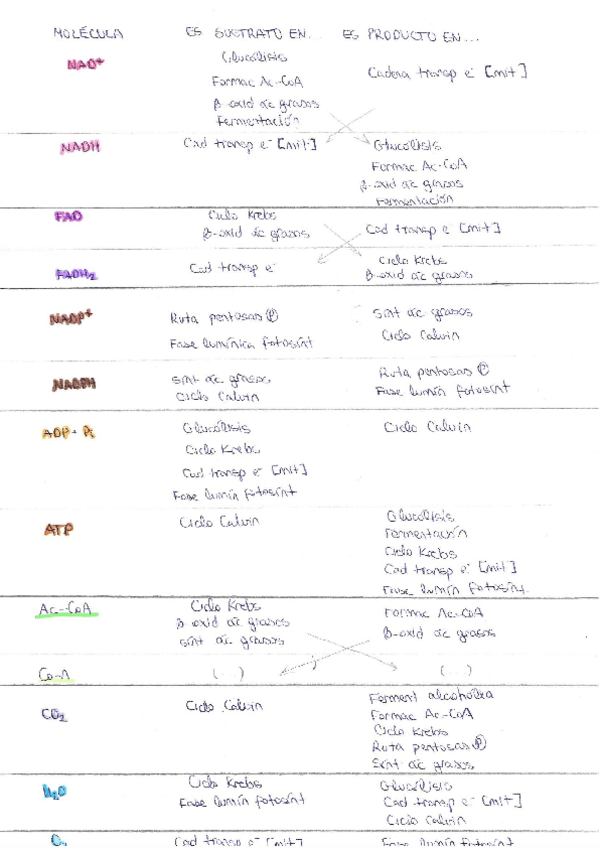 MOLÉCULA ES SUSTRATO EN... ES PRODUCTO EN...
NAD+ Glucólisis
Formac Ac-CoA Cadena transp e- [mit]
β oxid ác grasos
Fermentación
NADH Cad transp e- [mit.] Glucólisis
Formac Ac-CoA
β-oxid ác grasos
Fermentación
FAD Ciclo Krebs Cad transp e- [mit]
β-oxid ác grasos
FADH2 Cad transp e- Ciclo Krebs
β-oxid ác grasos
NADP+ Ruta pentosas P Sínt ác grasos
Fase lumínica fotosínt Ciclo Calvin
NADPH Sínt ác grasos Ruta pentosas P
Ciclo Calvin Fase lumín fotosínt
ADP + Pi Glucólisis Ciclo Calvin
Ciclo Krebs
Cad transp e- [mit]
Fase lumín fotosínt
ATP Ciclo Calvin Glucólisis
Fermentación
Ciclo Krebs
Cad transp e- [mit]
Fase lumín fotosínt.
Ac-CoA Ciclo Krebs Formac Ac-CoA
β oxid ác grasos β-oxid ác grasos
sínt ác grasos
Co-A (..) (...)
CO2 Ciclo Calvin Ferment alcohólica
Formac Ac-CoA
Ciclo Krebs
Ruta pentosas P
Sínt ác grasos
H2O Ciclo Krebs Glucólisis
Fase lumín fotosínt Cad transp e- [mit]
Ciclo Calvin
O2 Cad transp e- [mit] Fase lumín fotosínt